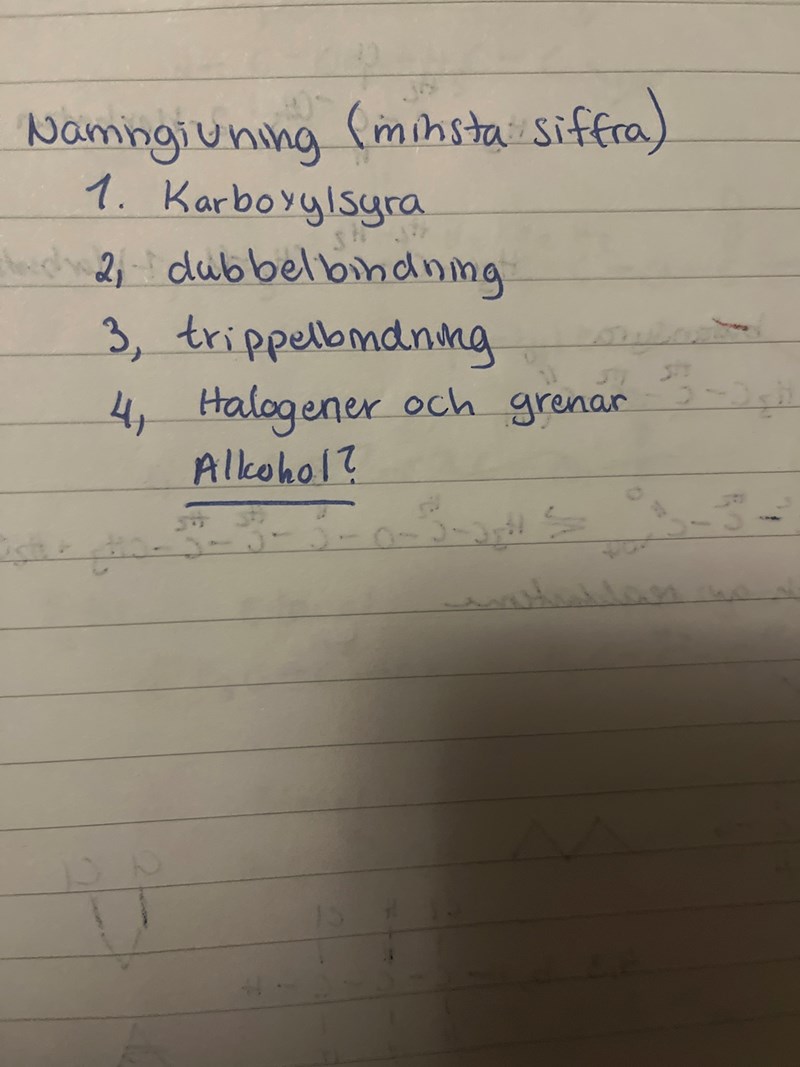 Namngivning (minsta siffra)
1. Karboxylsyra
2, dubbelbindning
3, trippelbindning
4, Halogener och grenar
Alkohol?